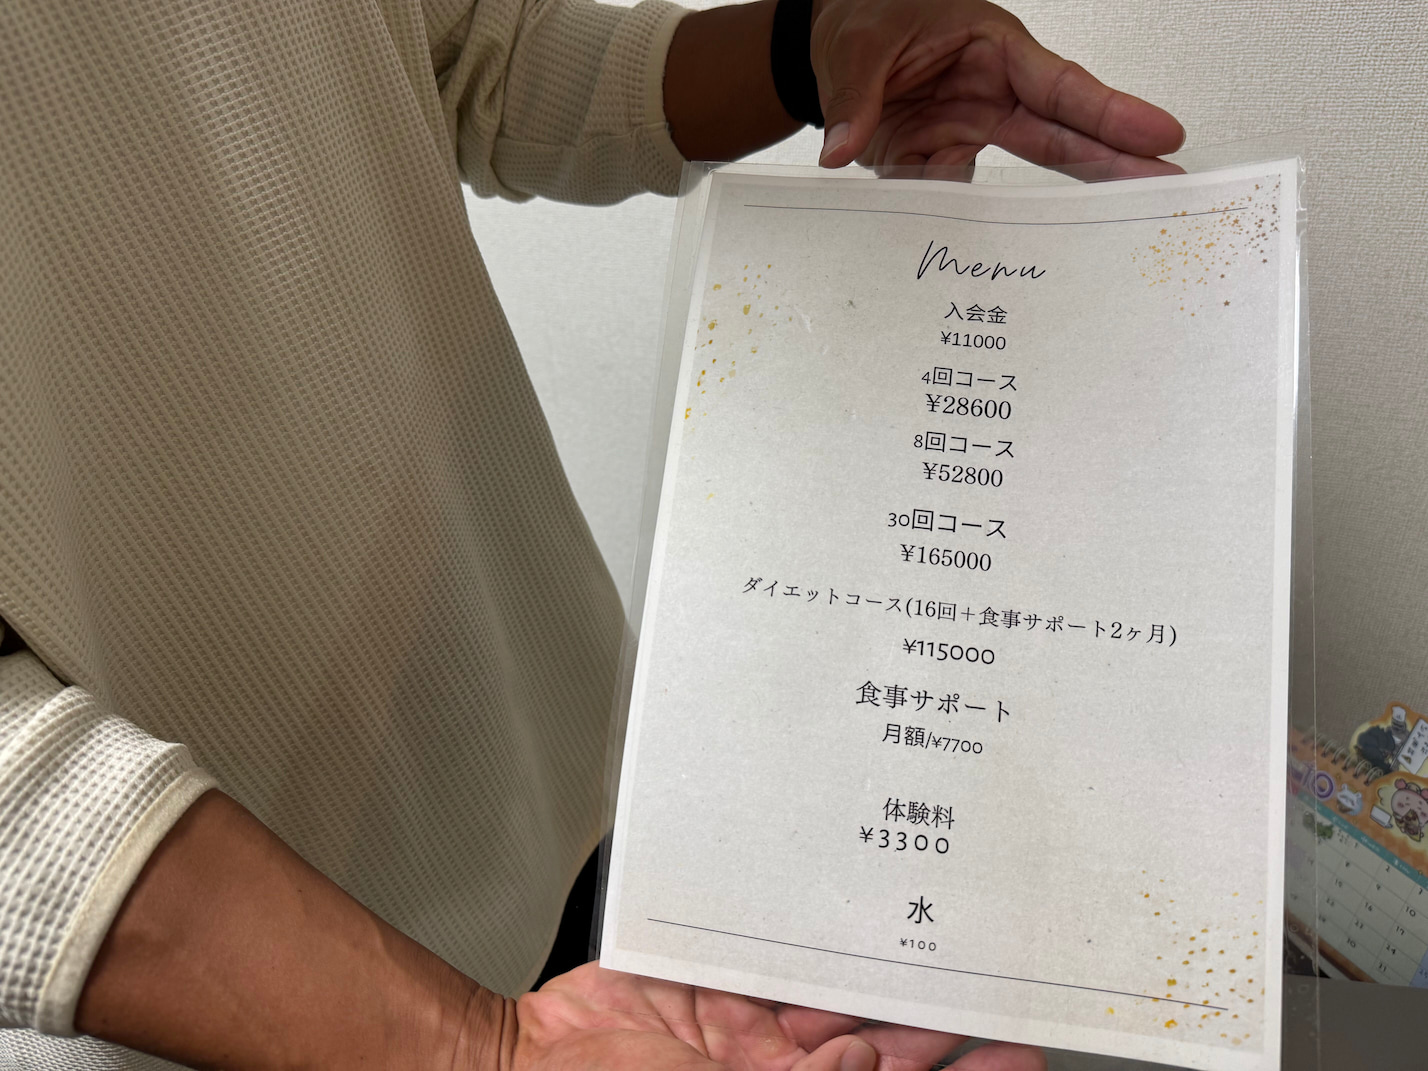 Menu
入会金
¥11000
4回コース
¥28600
8回コース
¥52800
30回コース
¥165000
ダイエットコース(16回＋食事サポート2ヶ月)
¥115000
食事サポート
月額/¥7700
体験料
¥3300
水
¥100